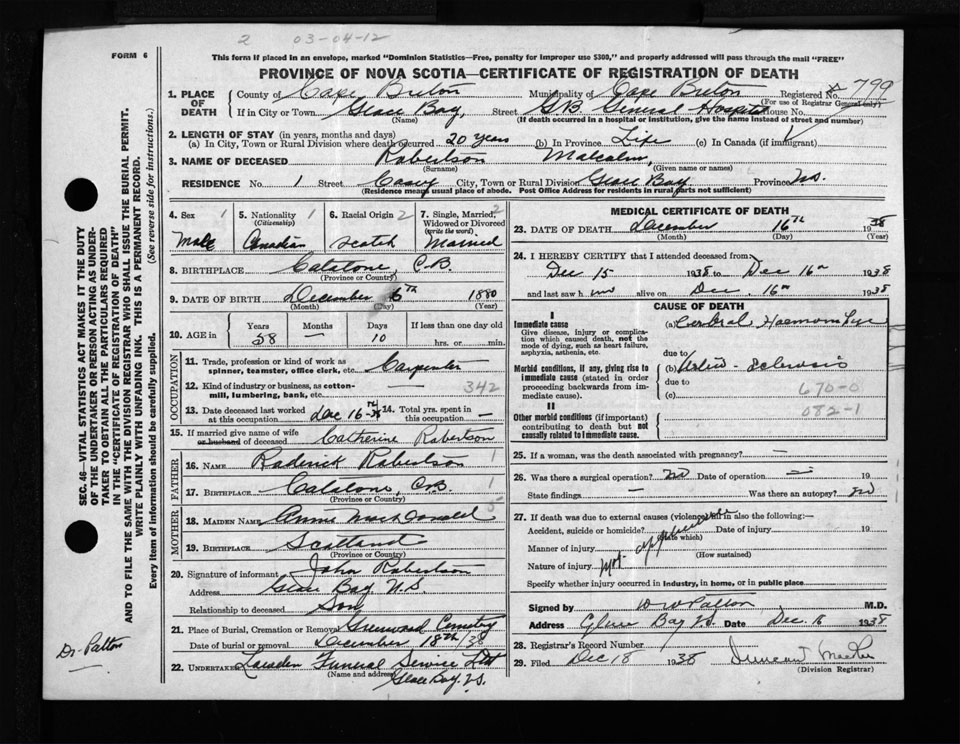 2 03-04-12
FORM 6
This form if placed in an envelope, marked "Dominion Statistics—Free, penalty for improper use $300," and properly addressed will pass through the mail "FREE"
PROVINCE OF NOVA SCOTIA—CERTIFICATE OF REGISTRATION OF DEATH
1. PLACE OF DEATH County of Cape Breton Municipality of Cape Breton Registered No. 799
(For use of Registrar General only)
If in City or Town Glace Bay, Street G.B. General Hospital House No.
(Name) (If death occurred in a hospital or institution, give the name instead of street and number)
2. LENGTH OF STAY (in years, months and days)
(a) In City, Town or Rural Division where death occurred 20 years (b) In Province Life (c) In Canada (if immigrant)
3. NAME OF DECEASED Robertson Malcolm,
(Surname) (Given name or names)
RESIDENCE No. 1 Street City, Town or Rural Division Glace Bay Province N.S.
(Residence means usual place of abode. Post Office Address for residents in rural parts not sufficient)
4. Sex 1 Male
5. Nationality (Citizenship) 1 Canadian
6. Racial Origin 2 Scotch
7. Single, Married, Widowed or Divorced (write the word) 2 Married
8. BIRTHPLACE Calstone, C.B.
(Province or Country)
9. DATE OF BIRTH December 6th 1880
(Month) (Day) (Year)
10. AGE in Years Months Days If less than one day old
58 — 10 hrs. or min.
OCCUPATION
11. Trade, profession or kind of work as spinner, teamster, office clerk, etc. Carpenter
12. Kind of industry or business, as cotton-mill, lumbering, bank, etc. 342
13. Date deceased last worked at this occupation Dec 16th 38
14. Total yrs. spent in this occupation —
15. If married give name of wife or husband of deceased Catherine Robertson
FATHER
16. NAME Roderick Robertson 1
17. BIRTHPLACE Calstone, C.B. 1
(Province or Country)
MOTHER
18. MAIDEN NAME Annie MacDonald 5
19. BIRTHPLACE Scotland
(Province or Country)
20. Signature of informant John Robertson
Address Glace Bay N.S.
Relationship to deceased Son
21. Place of Burial, Cremation or Removal Greenwood Cemetery
Date of burial or removal December 18th/38
22. UNDERTAKER Funeral Service Ltd
(Name and address) Glace Bay N.S.
MEDICAL CERTIFICATE OF DEATH
23. DATE OF DEATH December 16th 1938
(Month) (Day) (Year)
24. I HEREBY CERTIFY that I attended deceased from
Dec 15 1938 to Dec 16th 1938
and last saw him alive on Dec. 16th 1938
CAUSE OF DEATH
I
Immediate cause
Give disease, injury or complication which caused death, not the mode of dying, such as heart failure, asphyxia, asthenia, etc.
(a) Cerebral Haemorrhage
due to
Morbid conditions, if any, giving rise to immediate cause (stated in order proceeding backwards from immediate cause).
(b) Arterio-Sclerosis
due to 670-0
(c) 082-1
II
Other morbid conditions (if important) contributing to death but not causally related to immediate cause.
25. If a woman, was the death associated with pregnancy? —
26. Was there a surgical operation? no Date of operation —
State findings — Was there an autopsy? no
27. If death due to external causes (violence) fill in also the following:—
Accident, suicide or homicide? Date of injury 19
(State which)
Manner of injury
(How sustained)
Nature of injury
not applicable
Specify whether injury occurred in industry, in home, or in public place
Signed by W W Patton M.D.
Address Glace Bay N.S. Date Dec. 16 1938
28. Registrar's Record Number
29. Filed Dec 18 1938 Duncan
(Division Registrar)
SEC. 46—VITAL STATISTICS ACT MAKES IT THE DUTY OF THE UNDERTAKER OR PERSON ACTING AS UNDERTAKER TO OBTAIN ALL THE PARTICULARS REQUIRED IN THE "CERTIFICATE OF REGISTRATION OF DEATH" AND TO FILE THE SAME WITH THE DIVISION REGISTRAR WHO SHALL ISSUE THE BURIAL PERMIT.
WRITE PLAINLY WITH UNFADING INK. THIS IS A PERMANENT RECORD.
Every item of information should be carefully supplied. (See reverse side for instructions.)
Dr. Patton